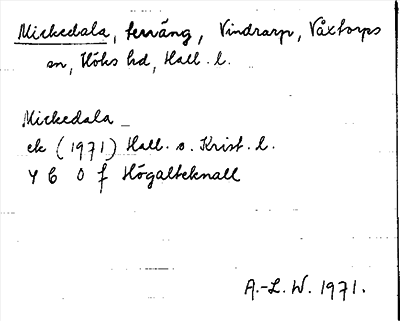 Mickedala, terräng, Vindrarp, Våxtorps
sn, Höks hd, Hall. l.
Mickedala _
ek (1971) Hall. o. Krist. l.
4 C 0 f Högalteknall
A.-L. W. 1971.